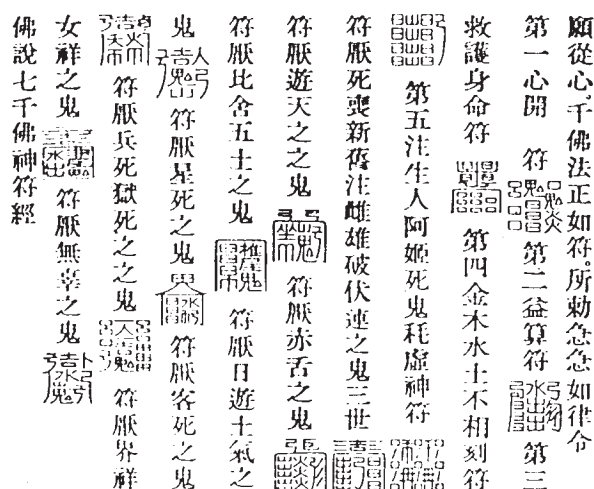 願從心。千佛法正如符。所勅急急如律令
第一心開 符 第二益算符 第三
救護身命符 第四金木水土不相刻符
第五注生人阿姬死鬼耗虛神符
符厭死喪新舊注雌雄破伏連之鬼三世
符厭遊天之之鬼 符厭赤舌之鬼
符厭比舍五土之鬼 符厭日遊土氣之
鬼 符厭星死之鬼 符厭客死之鬼
符厭兵死獄死之之鬼 符厭界祥
女祥之鬼 符厭無辜之鬼
佛說七千佛神符經